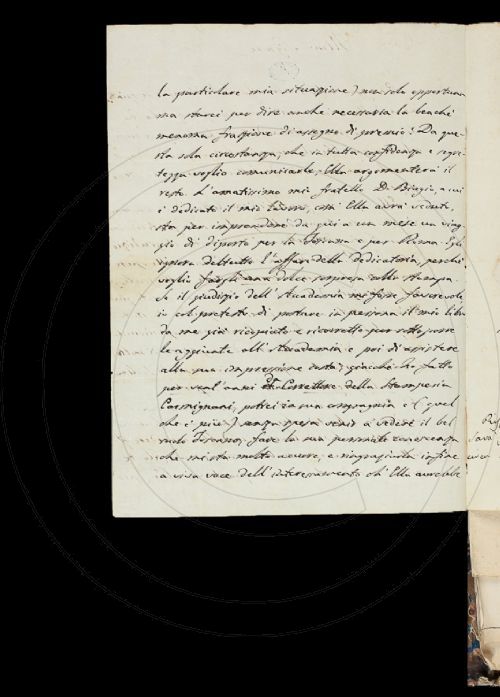 la particolare mia situazione) non solo opportuna
ma starei per dire anche necessaria la benché
menoma frazione di assegno di premio? Da que-
sta sola circostanza, che in tutta confidenza e segre-
tezza voglio comunicarle, Ella argomenterà il
resto. L'amatissimo mio fratello D. Biagio, a cui
è dedicato il mio lavoro, com' Ella avrà veduto,
sta per imprendere da qui a un mese un viag-
gio di diporto per la Toscana e per Roma. Egli
ignora del tutto l'affar della dedicatoria, perché
voglio fargli una dolce sorpresa alla stampa.
Se il giudizio dell' Accademia mi fosse favorevole,
io col pretesto di portare in persona il mio libro
da me già ricopiato e ricorretto per sottoporre
le aggiunte all' Accademia e poi di assistere
alla sua impressione costà, giacché ho fatto
per vent' anni il Correttore della Stamperia
Carmignani, potrei in sua compagnia e (quel
che è più) senza spesa venir a vedere il bel
suolo Toscano, fare la sua personale conoscenza
che mi sta molto a cuore, e ringraziarla infine
a viva voce dell' interessamento ch' Ella avrebbe